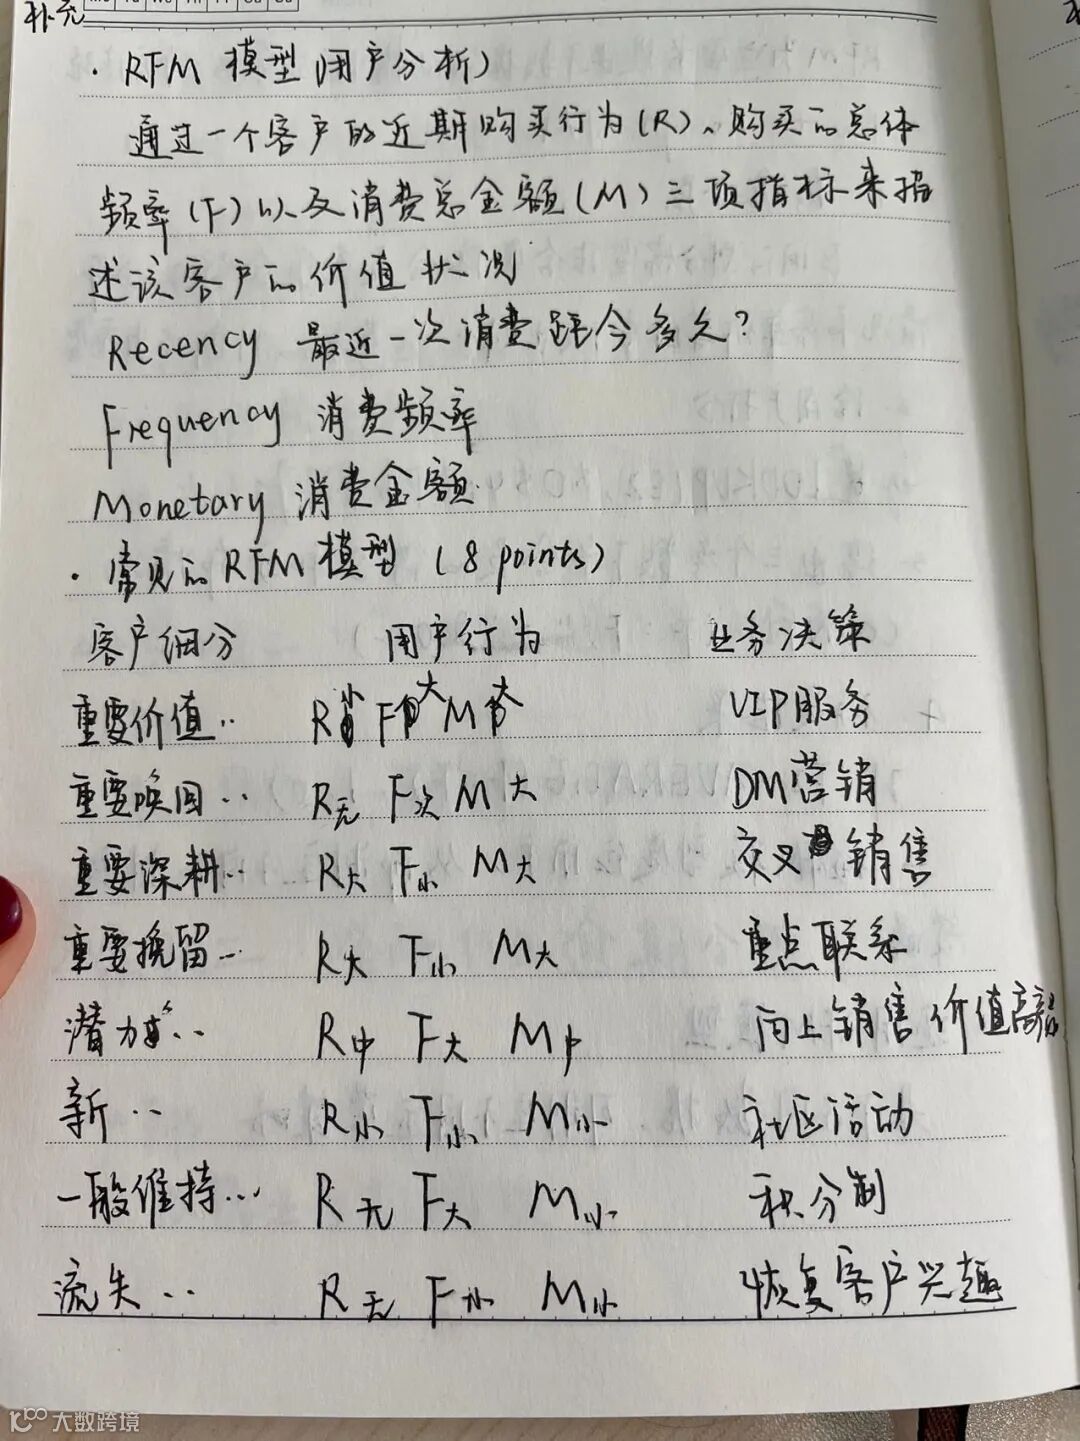 补充
· RFM 模型(用户分析)
通过一个客户的近期购买行为(R)、购买的总体
频率(F)以及消费总金额(M)三项指标来描
述该客户的价值状况
Recency 最近一次消费距今多久?
Frequency 消费频率
Monetary 消费金额
· 常见的RFM模型 (8 points)
客户细分 用户行为 业务决策
重要价值.. R小 F大 M大 VIP服务
重要唤回.. R无 F次 M大 DM营销
重要深耕.. R大 F小 M大 交叉销售
重要挽留.. R大 F小 M大 重点联系
潜力.. R中 F大 M中 向上销售 价值高
新.. R小 F小 M小 社区活动
一般维持... R无 F大 M小 积分制
流失.. R无 F小 M小 恢复客户兴趣
大数跨境